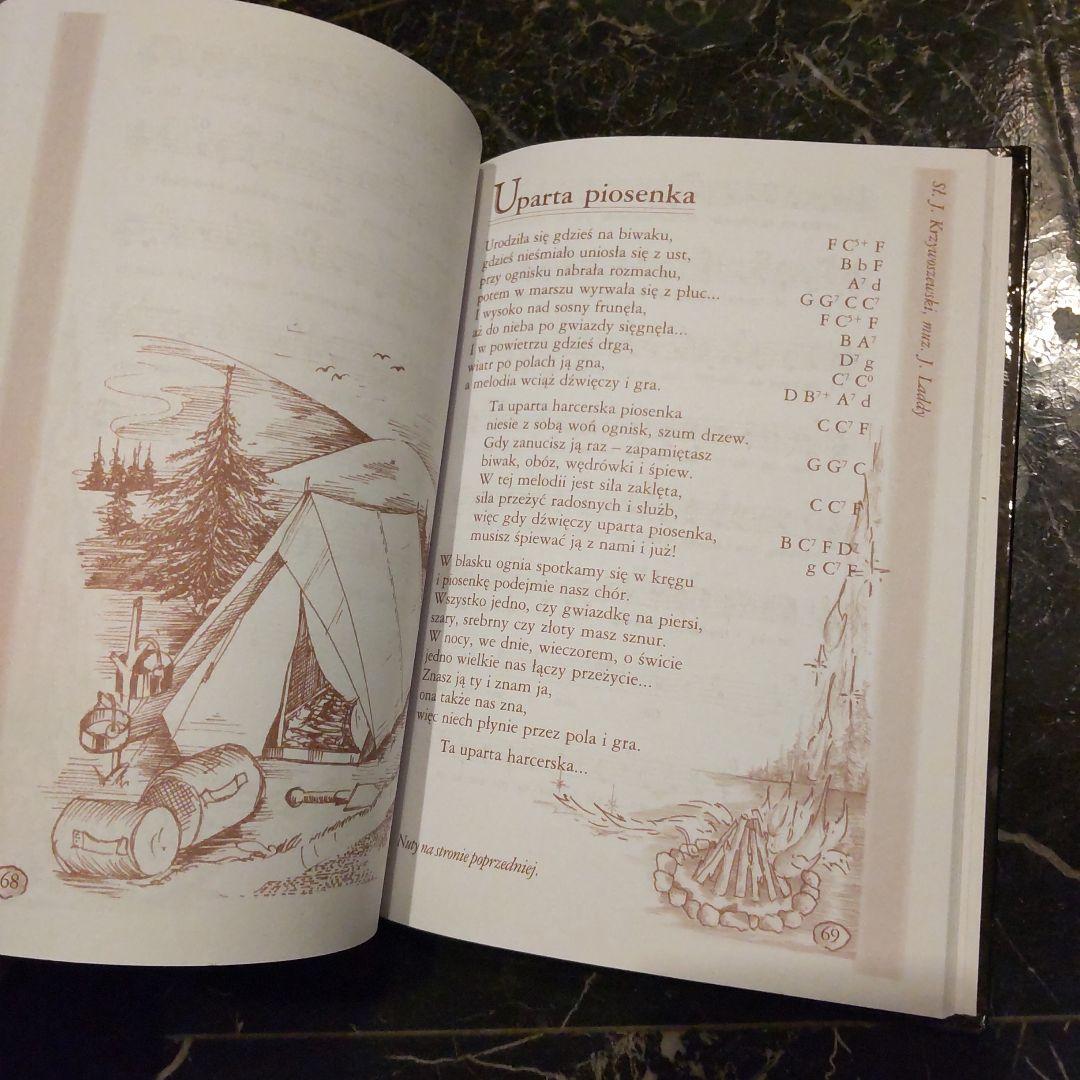 Uparta piosenka
Urodziła się gdzieś na biwaku,
gdzieś nieśmiało uniosła się z ust,
przy ognisku nabrała rozmachu,
potem w marszu wyrwała się z płuc...
I wysoko nad sosny frunęła,
aż do nieba po gwiazdy sięgnęła...
I w powietrzu gdzieś drga,
wiatr po polach ją gna,
a melodia wciąż dźwięczy i gra.
F C⁵⁺ F
B b F
A⁷ d
G G⁷ C C⁷
F C⁵⁺ F
B A⁷
D⁷ g
C⁷ C⁰
D B⁷⁺ A⁷ d
Ta uparta harcerska piosenka
niesie z sobą woń ognisk, szum drzew.
Gdy zanucisz ją raz – zapamiętasz
biwak, obóz, wędrówki i śpiew.
W tej melodii jest siła zaklęta,
siła przeżyć radosnych i służb,
więc gdy dźwięczy uparta piosenka,
musisz śpiewać ją z nami i już!
C C⁷ F
G G⁷ C
C C⁷ F
B C⁷ F D⁷
g C⁷ F
W blasku ognia spotkamy się w kręgu
i piosenkę podejmie nasz chór.
Wszystko jedno, czy gwiazdkę na piersi,
szary, srebrny czy złoty masz sznur.
W nocy, we dnie, wieczorem, o świcie
jedno wielkie nas łączy przeżycie...
Znasz ją ty i znam ja,
ona także nas zna,
więc niech płynie przez pola i gra.
Ta uparta harcerska...
Nuty na stronie poprzedniej.
Sł. J. Krzywoszewski, muz. J. Izaddy
68
69